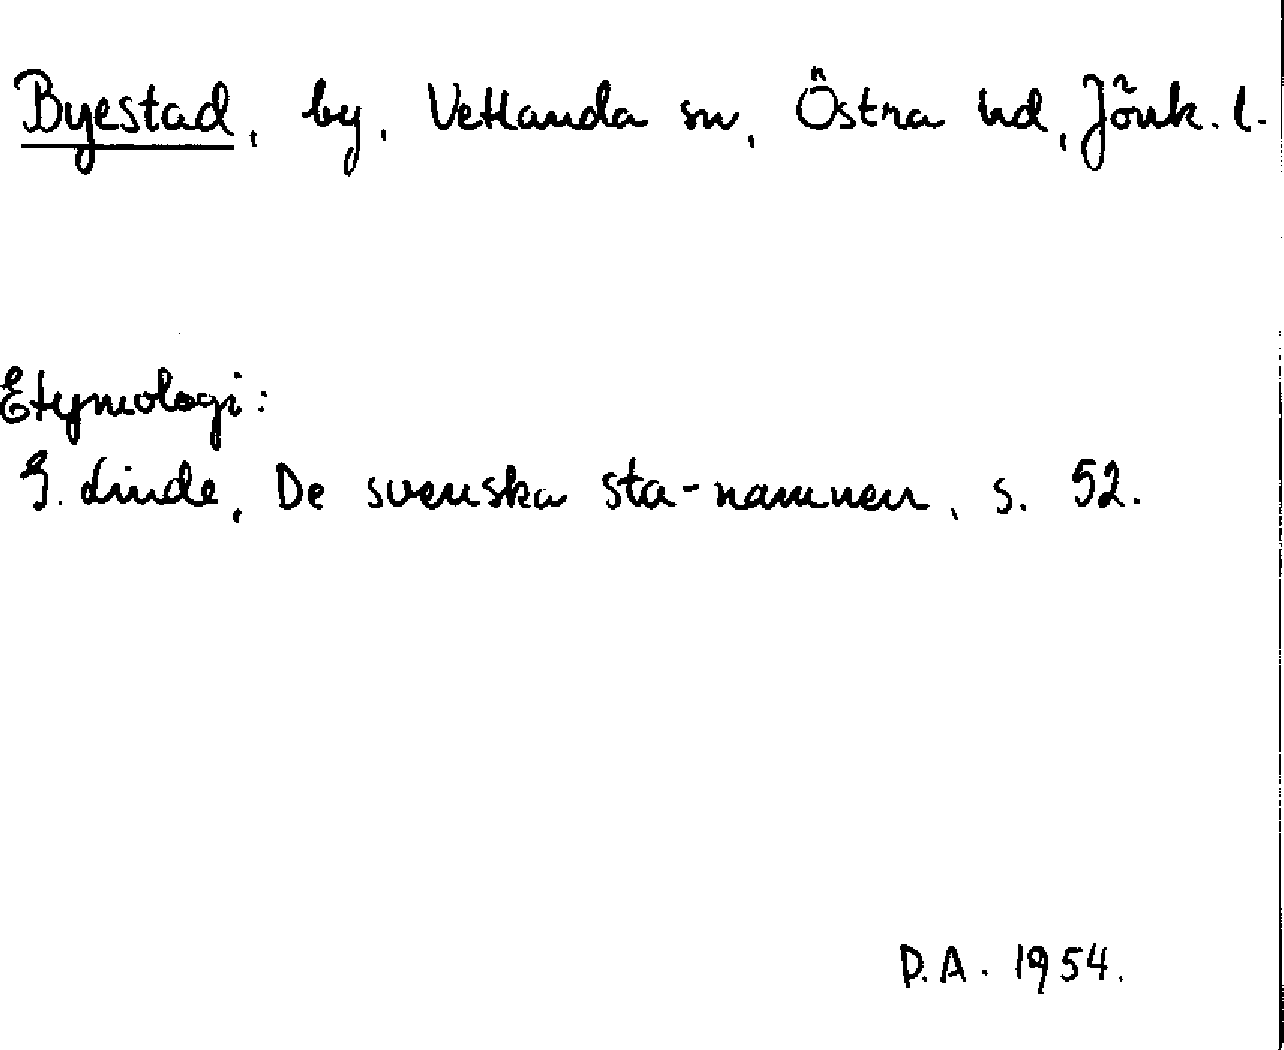 Byestad, by, Vetlanda sn, Östra hd, Jönk. l.
Etymologi:
G. Linde, De svenska sta-namnen, s. 52.
D.A. 1954.